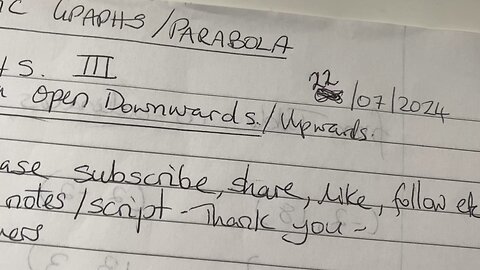 IC GRAPHS/PARABOLA
S. III 22/07/2024
Open Downwards./Upwards.
ase subscribe, share, like, follow etc
notes/script - Thank you -
ners